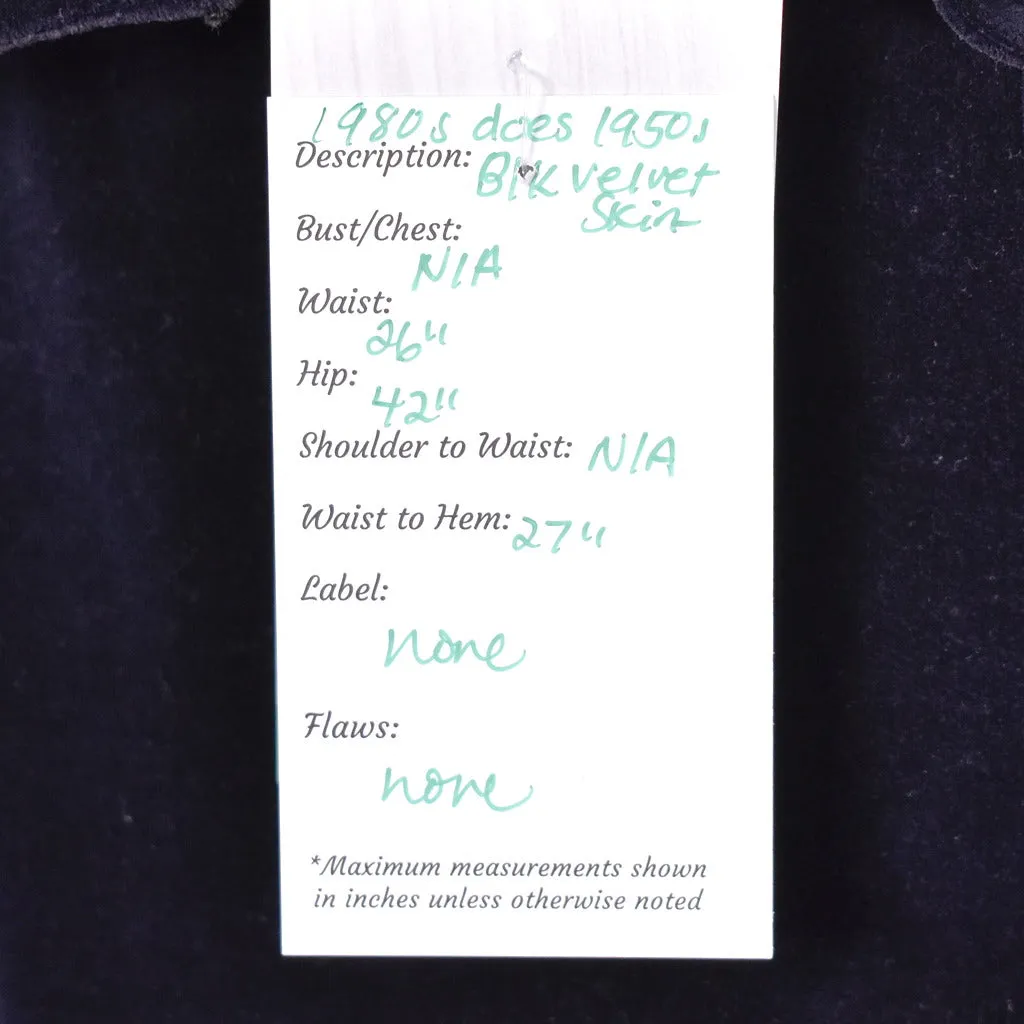 1980s does 1950s
Description: Blk velvet
Skirt
Bust/Chest:
N/A
Waist:
26"
Hip:
42"
Shoulder to Waist: N/A
Waist to Hem: 27"
Label:
none
Flaws:
none
*Maximum measurements shown
in inches unless otherwise noted